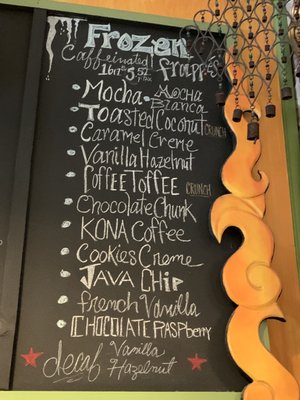 Frozen
Caffeinated frappes
16oz $5.52
Mocha Mocha Bianca
Toasted Coconut CRUNCH
Caramel Creme
Vanilla Hazelnut
Coffee Toffee CRUNCH
Chocolate Chunk
KONA Coffee
Cookies Creme
JAVA CHIP
french Vanilla
CHOCOLATE RASPberry
decaf Vanilla
Hazelnut